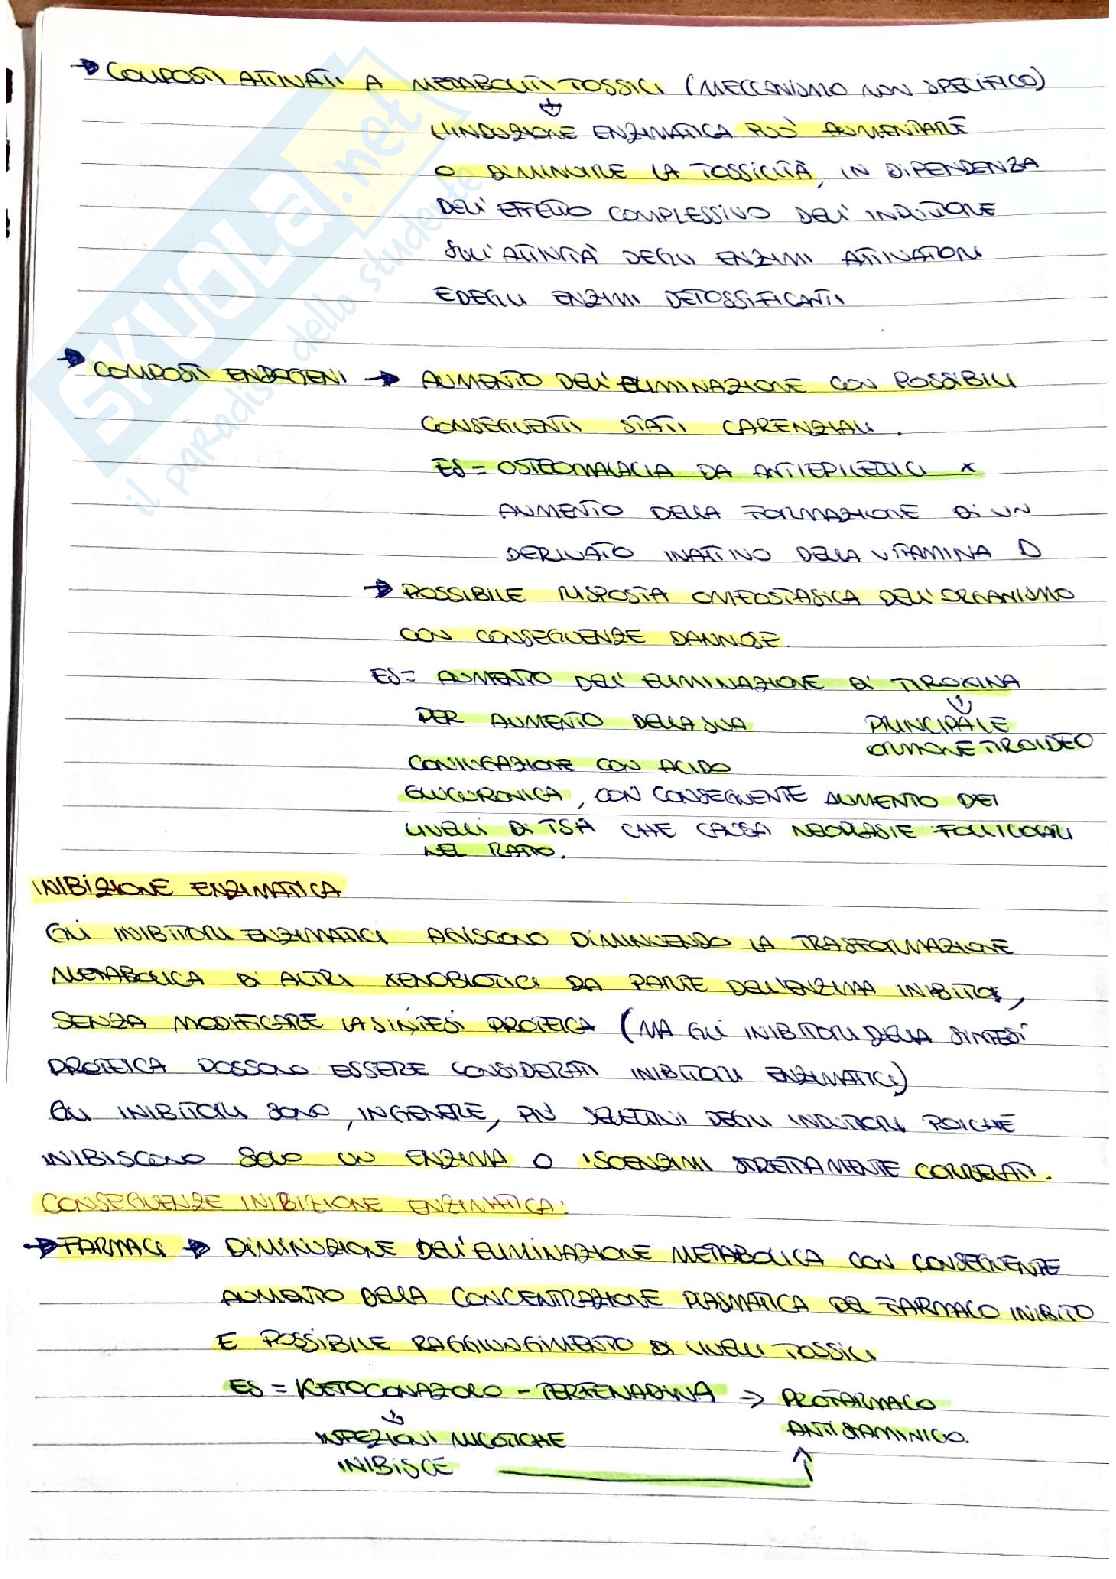 → COMPOSTI ATTIVATI A METABOLITI TOSSICI (MECCANISMO NON SPECIFICO)
L'INDUZIONE ENZIMATICA PUÒ AUMENTARE
O DIMINUIRE LA TOSSICITÀ, IN DIPENDENZA
DELL'EFFETTO COMPLESSIVO DELL'INDUZIONE
SULL'ATTIVITÀ DEGLI ENZIMI ATTIVATORI
E DEGLI ENZIMI DETOSSIFICANTI
→ COMPOSTI ENDOGENI → AUMENTO DELL'ELIMINAZIONE CON POSSIBILI
CONSEGUENTI STATI CARENZIALI.
ES = OSTEOMALACIA DA ANTIEPILETTICI X
AUMENTO DELLA FORMAZIONE DI UN
DERIVATO INATTIVO DELLA VITAMINA D
→ POSSIBILE RISPOSTA OMEOSTASICA DELL'ORGANISMO
CON CONSEGUENZE DANNOSE.
ES = AUMENTO DELL'ELIMINAZIONE DI TIROXINA
PER AUMENTO DELLA SUA PRINCIPALE
ORMONE TIROIDEO
CONIUGAZIONE CON ACIDO
GLUCURONICA, CON CONSEGUENTE AUMENTO DEI
LIVELLI DI TSH CHE CAUSA NEOPLASIE FOLLICOLARI
NEL RATTO.
INIBIZIONE ENZIMATICA
GLI INIBITORI ENZIMATICI AGISCONO DIMINUENDO LA TRASFORMAZIONE
METABOLICA DI ALTRI XENOBIOTICI DA PARTE DELL'ENZIMA INIBITO,
SENZA MODIFICARE LA SINTESI PROTEICA (MA GLI INIBITORI DELLA SINTESI
PROTEICA POSSONO ESSERE CONSIDERATI INIBITORI ENZIMATICI)
GLI INIBITORI SONO, IN GENERE, PIÙ SELETTIVI DEGLI INDUTTORI POICHÉ
INIBISCONO SOLO UN ENZIMA O ISOENZIMI STRETTAMENTE CORRELATI.
CONSEGUENZE INIBIZIONE ENZIMATICA:
→ FARMACI → DIMINUZIONE DELL'ELIMINAZIONE METABOLICA CON CONSEGUENTE
AUMENTO DELLA CONCENTRAZIONE PLASMATICA DEL FARMACO INIBITO
E POSSIBILE RAGGIUNGIMENTO DI LIVELLI TOSSICI
ES = KETOCONAZOLO - TERFENADINA => PROFARMACO
INFEZIONI MICOTICHE ANTISTAMINICO.
INIBISCE
SKUOLA.net
il paradiso dello studente